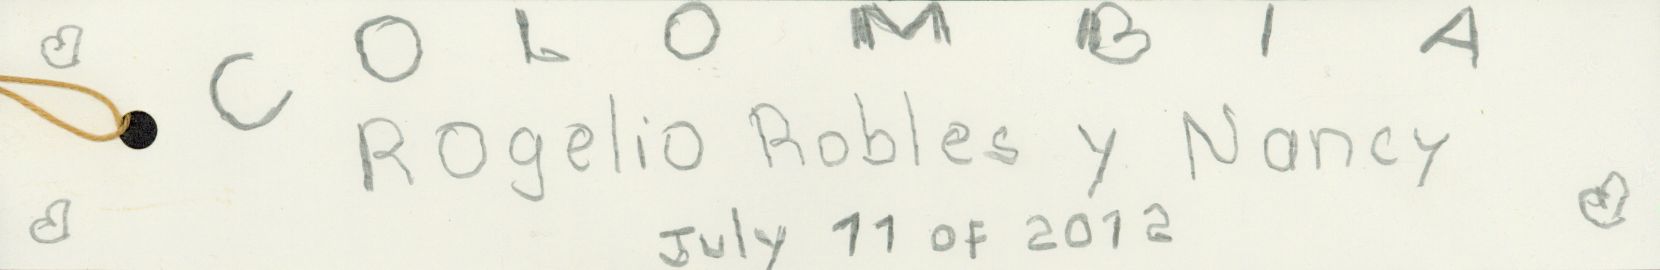 COLOMBIA
Rogelio Robles y Nancy
July 11 of 2012